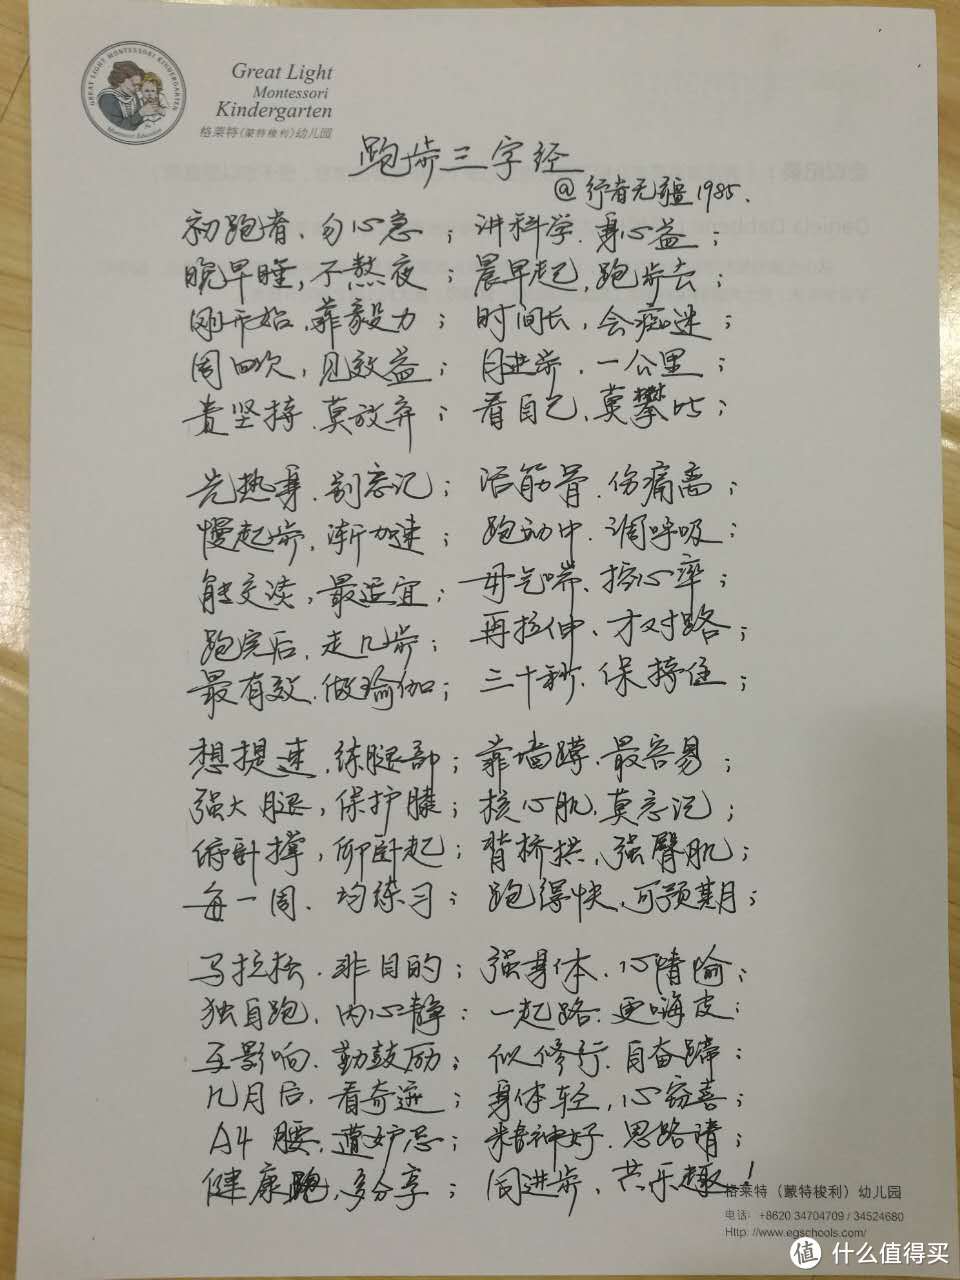 GREAT LIGHT MONTESSORI KINDERGARTEN
Montessori Education
Great Light
Montessori
Kindergarten
格莱特(蒙特梭利)幼儿园
跑步三字经
@行者无疆1985.
初跑者、勿心急；讲科学、身心益；
晚早睡,不熬夜；晨早起,跑步去；
刚开始,靠毅力；时间长,会痴迷；
周四次,见效益；月进步,一公里；
贵坚持、莫放弃；看自己,莫攀比；
先热身、别忘记；活筋骨、伤痛离；
慢起步,渐加速；跑动中、调呼吸；
能交谈,最适宜；毋气喘、控心率；
跑完后、走几步；再拉伸、才对路；
最有效、做瑜伽；三十秒、保持住；
想提速,练腿部；靠墙蹲、最容易；
强大腿,保护膝；核心肌,莫忘记；
俯卧撑,仰卧起；背桥拱、强臀肌；
每一周、均练习；跑得快、可预期；
马拉松、非目的；强身体、心情愉；
独自跑,内心静；一起跑、更嗨皮；
互影响、勤鼓励；似修行、自奋蹄；
几月后,看奇迹；身体轻,心窃喜；
A4腰,遭妒忌；精神好、思路清；
健康跑,多分享；同进步、共乐趣！
格莱特（蒙特梭利）幼儿园
电话: +8620 34704709 / 34524680
Http: //www.egschools.com/
值 什么值得买